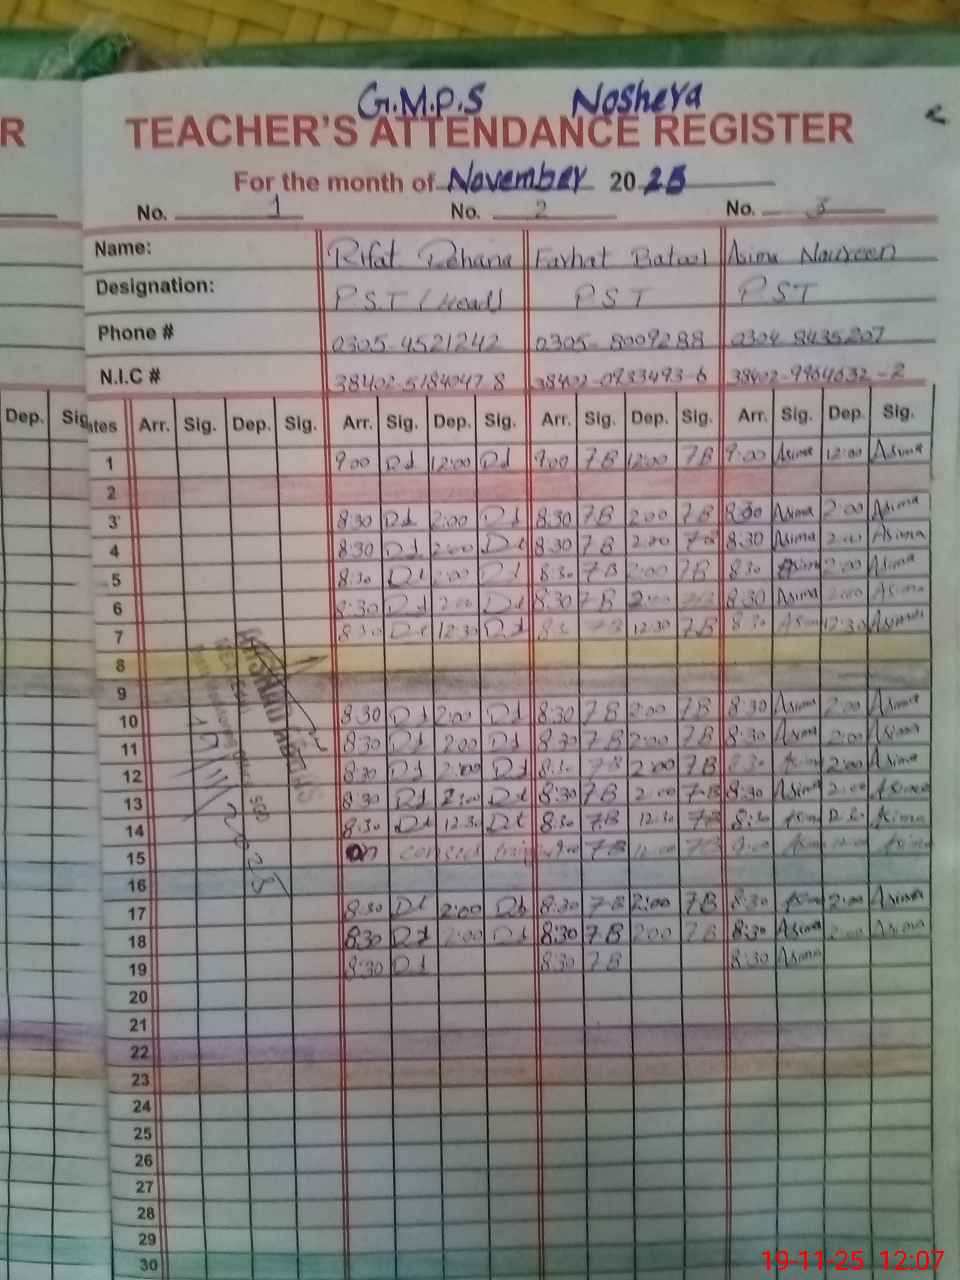 G.M.P.S Noshera
R TEACHER'S ATTENDANCE REGISTER
For the month of November 2025
No. 1 No. 2 No. 3
Name: Rifat Rehana Farhat Batool Asima Nousreen
Designation: P.S.T (Head) P S T P S T
Phone # 0305-4521242 0305-8009288 0304-8435207
N.I.C # 38402-5184047 8 38402-0933493-6 38402-9964632-2
Dep. Sig ates Arr. Sig. Dep. Sig. Arr. Sig. Dep. Sig. Arr. Sig. Dep. Sig. Arr. Sig. Dep. Sig.
1 9:00 12:00 9:00 7B 12:00 7B 9:00 Asima 12:00 Asima
2
3 8:30 2:00 8:30 7B 2:00 7B 8:30 Asima 2:00 Asima
4 8:30 2:00 8:30 7B 2:00 7B 8:30 Asima 2:00 Asima
5 8:30 2:00 8:30 7B 2:00 7B 8:30 Asima 2:00 Asima
6 8:30 2:00 8:30 7B 2:00 7B 8:30 Asima 2:00 Asima
7 8:30 12:30 8:30 7B 12:30 7B 8:30 Asima 12:30 Asima
8
9
10 8:30 2:00 8:30 7B 2:00 7B 8:30 Asima 2:00 Asima
11 8:30 2:00 8:30 7B 2:00 7B 8:30 Asima 2:00 Asima
12 8:30 2:00 8:30 7B 2:00 7B 8:30 Asima 2:00 Asima
13 8:30 2:00 8:30 7B 2:00 7B 8:30 Asima 2:00 Asima
14 8:30 12:30 8:30 7B 12:30 7B 8:30 Asima 12:30 Asima
15 on 9:00 7B 12:00 7B 9:00 Asima 12:00 Asima
16
17 8:30 2:00 8:30 7B 2:00 7B 8:30 Asima 2:00 Asima
18 8:30 2:00 8:30 7B 2:00 7B 8:30 Asima 2:00 Asima
19 8:30 8:30 7B 8:30 Asima
20
21
22
23
24
25
26
27
28
29
30
19-11-25 12:07